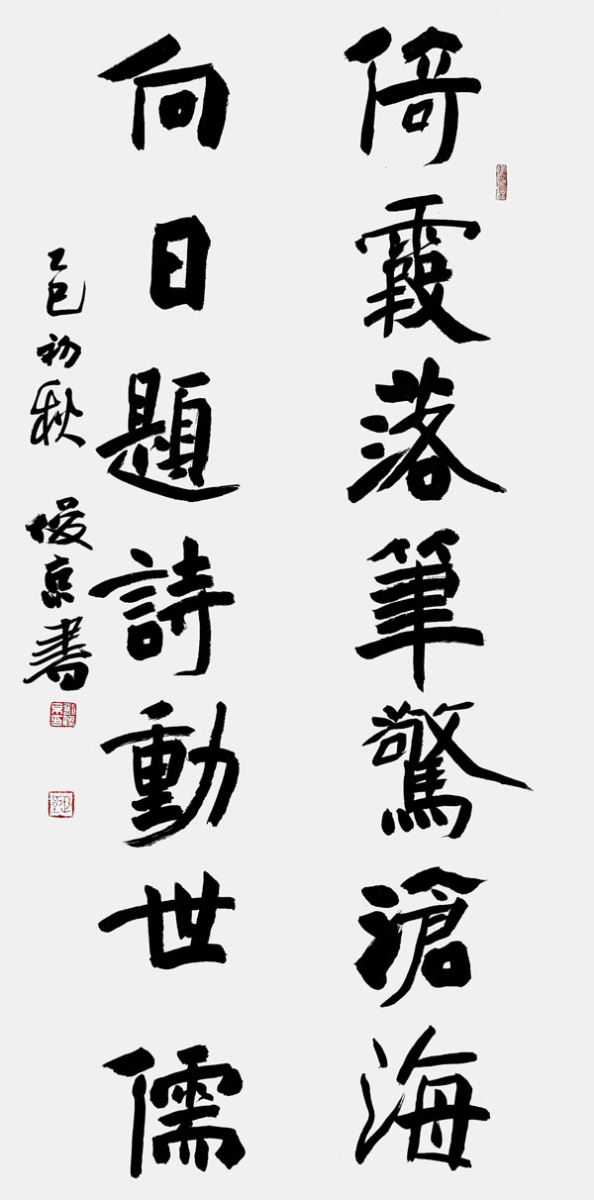 倚霞落筆驚滄海
向日題詩動世儒
乙巳初秋 俊京書